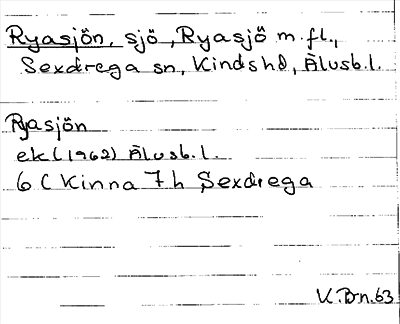 Ryasjön, sjö, Ryasjö m.fl.,
Sexdrega sn, Kinds hd, Älvsb.l.
Ryasjön
ek (1962) Älvsb.l.
6 C Kinna 7 h Sexdrega